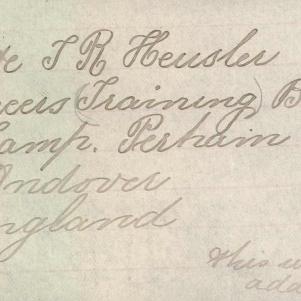 te T R Heusler
neers (Training) B
Camp. Perham
Andover
England
this
add